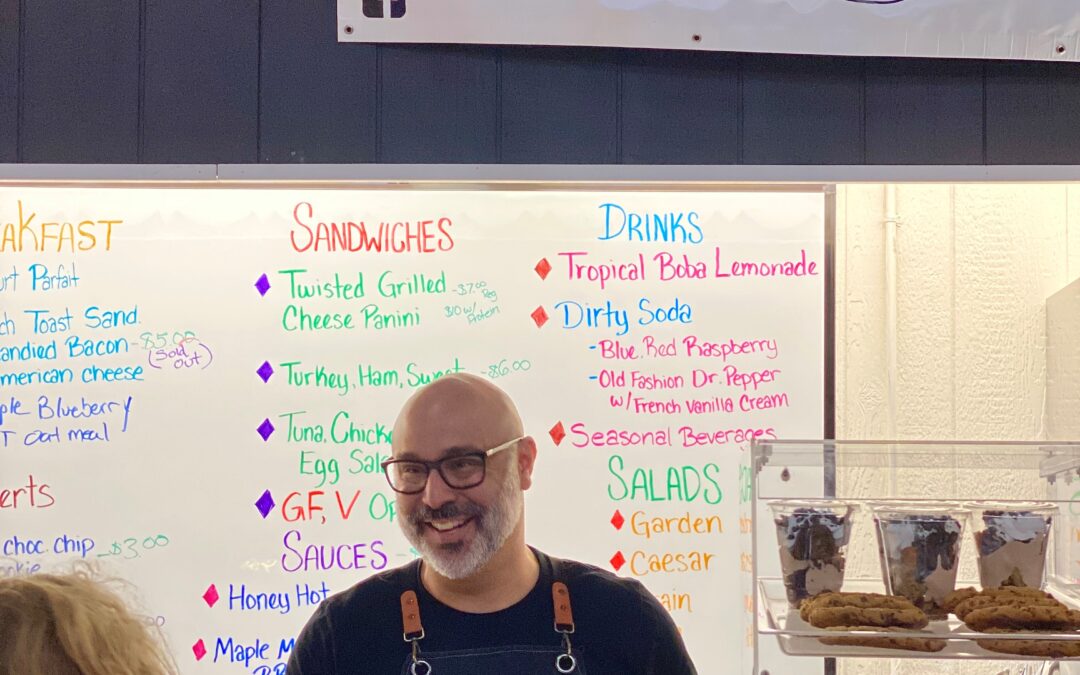 AKFAST
urt Parfait
ch Toast Sand.
andied Bacon - $5.00
(Sold out)
merican cheese
ple Blueberry
T Oatmeal
erts
choc. chip - $3.00
SANDWICHES
Twisted Grilled - $7.00 Reg
Cheese Panini $10 w/ Protein
Turkey, Ham, Sweet - $6.00
Tuna, Chick
Egg Sal
GF, V Op
SAUCES
Honey Hot
Maple M
DRINKS
Tropical Boba Lemonade
Dirty Soda
- Blue, Red Raspberry
- Old Fashion Dr. Pepper
w/ French Vanilla Cream
Seasonal Beverages
SALADS
Garden
Caesar
ain